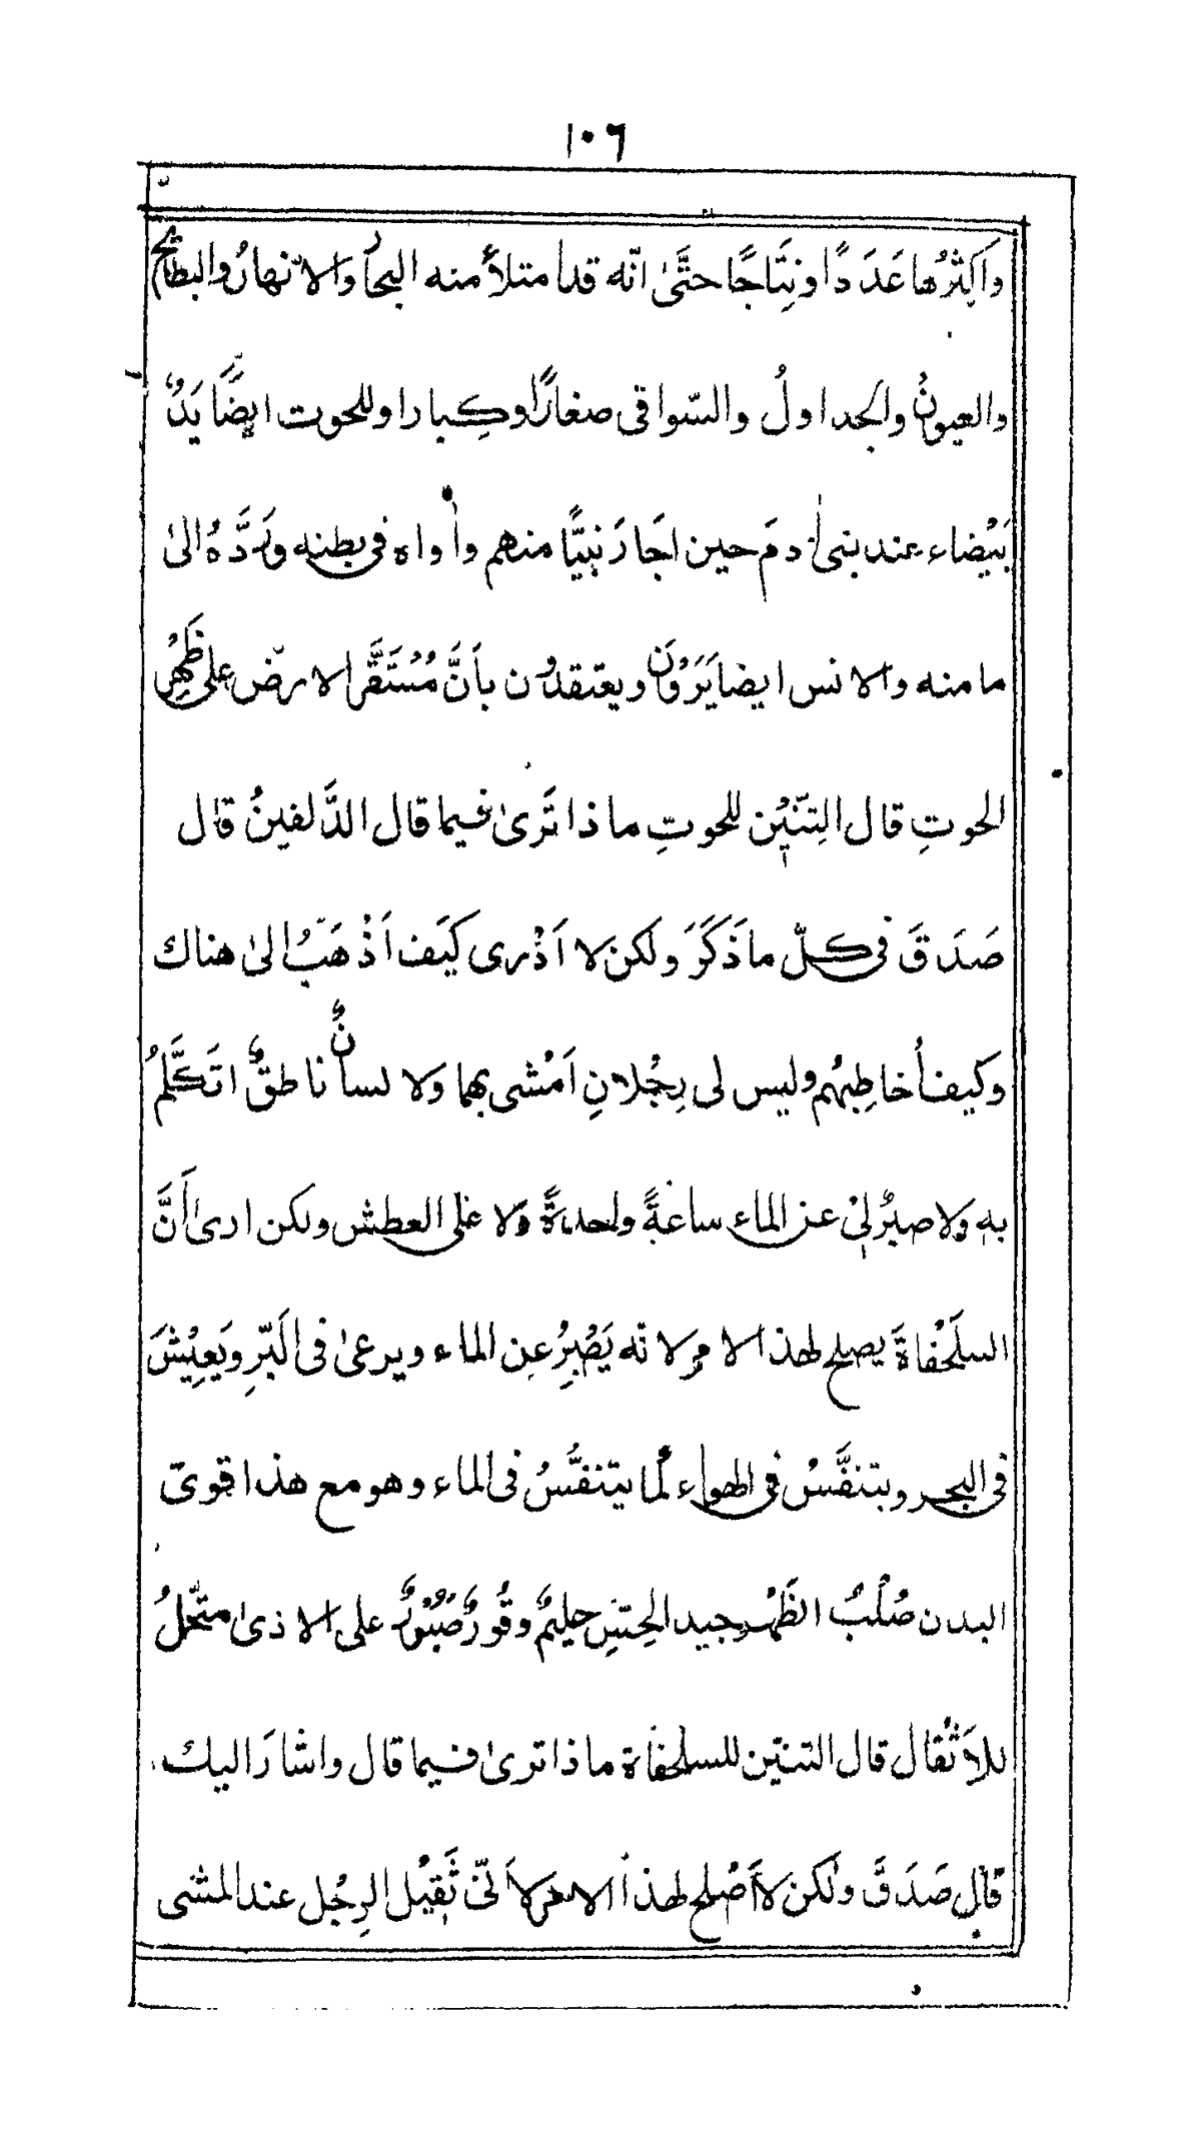 ١٠٦
واَكثرُها عَدَدًا ونِتَاجًا حتَّىٰ انّه قد امتلأَ منه البحارُ والانهارُ والبطايحُ
والعيونُ والجداولُ والسّواقى صغارًا وكِبارا وللحوت ايضًا يَدٌ
بَيْضاء عند بنى اٰدمَ حين اجَارَ نبيًّا منهم واٰواه فى بطنه ورَدَّهُ الىٰ
مامنه والانس ايضا يَرَوْنَ ويعتقدُون بأَنَّ مُسْتَقَّر الارض على ظَهْرِ
الحوتِ قال التِنّيْن للحوتِ ماذا تَرىٰ فيما قال الدَّلفينُ قال
صَدَقَ فى كلّ ما ذَكَرَ ولكن لا اَدْرى كَيَف اَذْهَبُ الىٰ هناك
وكيف أُخاطِبهُم وليس لى رِجْلانِ اَمْشى بهما ولا لسانٌ ناطقٌ اتَكَّلمُ
به ولا صبرُلىْ عن الماء ساعةً واحدةً ولا على العطش ولكن ارىٰ أَنَّ
السلَحْفاةَ يصلح لهذا الامر لانّه يَصْبِرُ عن الماء ويرعىٰ فى البَرِّ ويَعِيْشَ
فى البحر ويتنفَّسُ فى الهواء كما يتنفَّسُ فى الماء وهو مع هذا قوىّ
البدن صُلْبُ الظَهْر جيد الحِسّ حليمٌ وقُورٌ صَبُوْرٌ على الاذىٰ متحّملُ
للأَثْقال قال التنّين للسلحفاة ماذا ترىٰ فيما قال واشارَ اليك
قال صَدَقَ ولٰكن لاأَصْلح لهذا الامر لاَنّى ثَقِيْل الرِجْل عند المشى